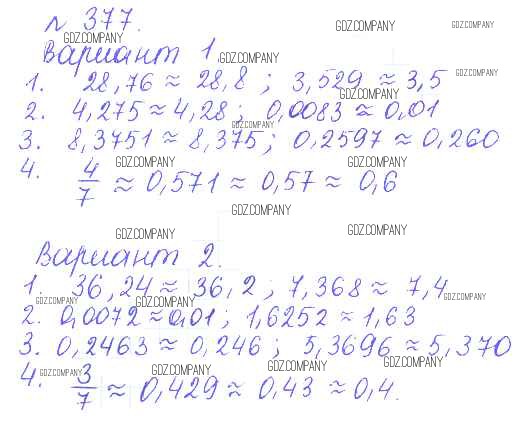 № 377.
GDZ.COMPANY GDZ.COMPANY GDZ.COMPANY
Вариант 1. GDZ.COMPANY
1. 28,76 ≈ 28,8 ; 3,529 ≈ 3,5 GDZ.COMPANY
GDZ.COMPANY
2. 4,275 ≈ 4,28 ; 0,0083 ≈ 0,01
GDZ.COMPANY
3. 8,3751 ≈ 8,375 ; 0,2597 ≈ 0,260
GDZ.COMPANY GDZ.COMPANY
4. 4/7 ≈ 0,571 ≈ 0,57 ≈ 0,6
GDZ.COMPANY
GDZ.COMPANY GDZ.COMPANY
Вариант 2.
1. 36,24 ≈ 36,2 ; 7,368 ≈ 7,4
GDZ.COMPANY GDZ.COMPANY GDZ.COMPANY
2. 0,0072 ≈ 0,01 ; 1,6252 ≈ 1,63
3. 0,2463 ≈ 0,246 ; 5,3696 ≈ 5,370
GDZ.COMPANY GDZ.COMPANY GDZ.COMPANY GDZ.COMPANY
4. 3/7 ≈ 0,429 ≈ 0,43 ≈ 0,4.